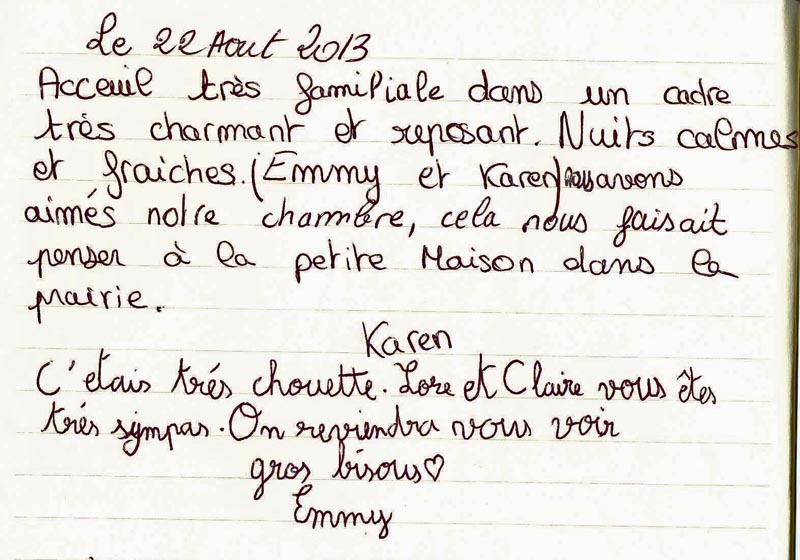 Le 22 Aout 2013
Acceuil très familiale dans un cadre
très charmant et reposant. Nuits calmes
et fraiches. (Emmy et Karen) nous avons
aimés notre chambre, cela nous faisait
penser à la petite Maison dans la
prairie.
Karen
C'etais trés chouette. Lore et Claire vous êtes
trés sympas. On reviendra vous voir
gros bisous♡
Emmy